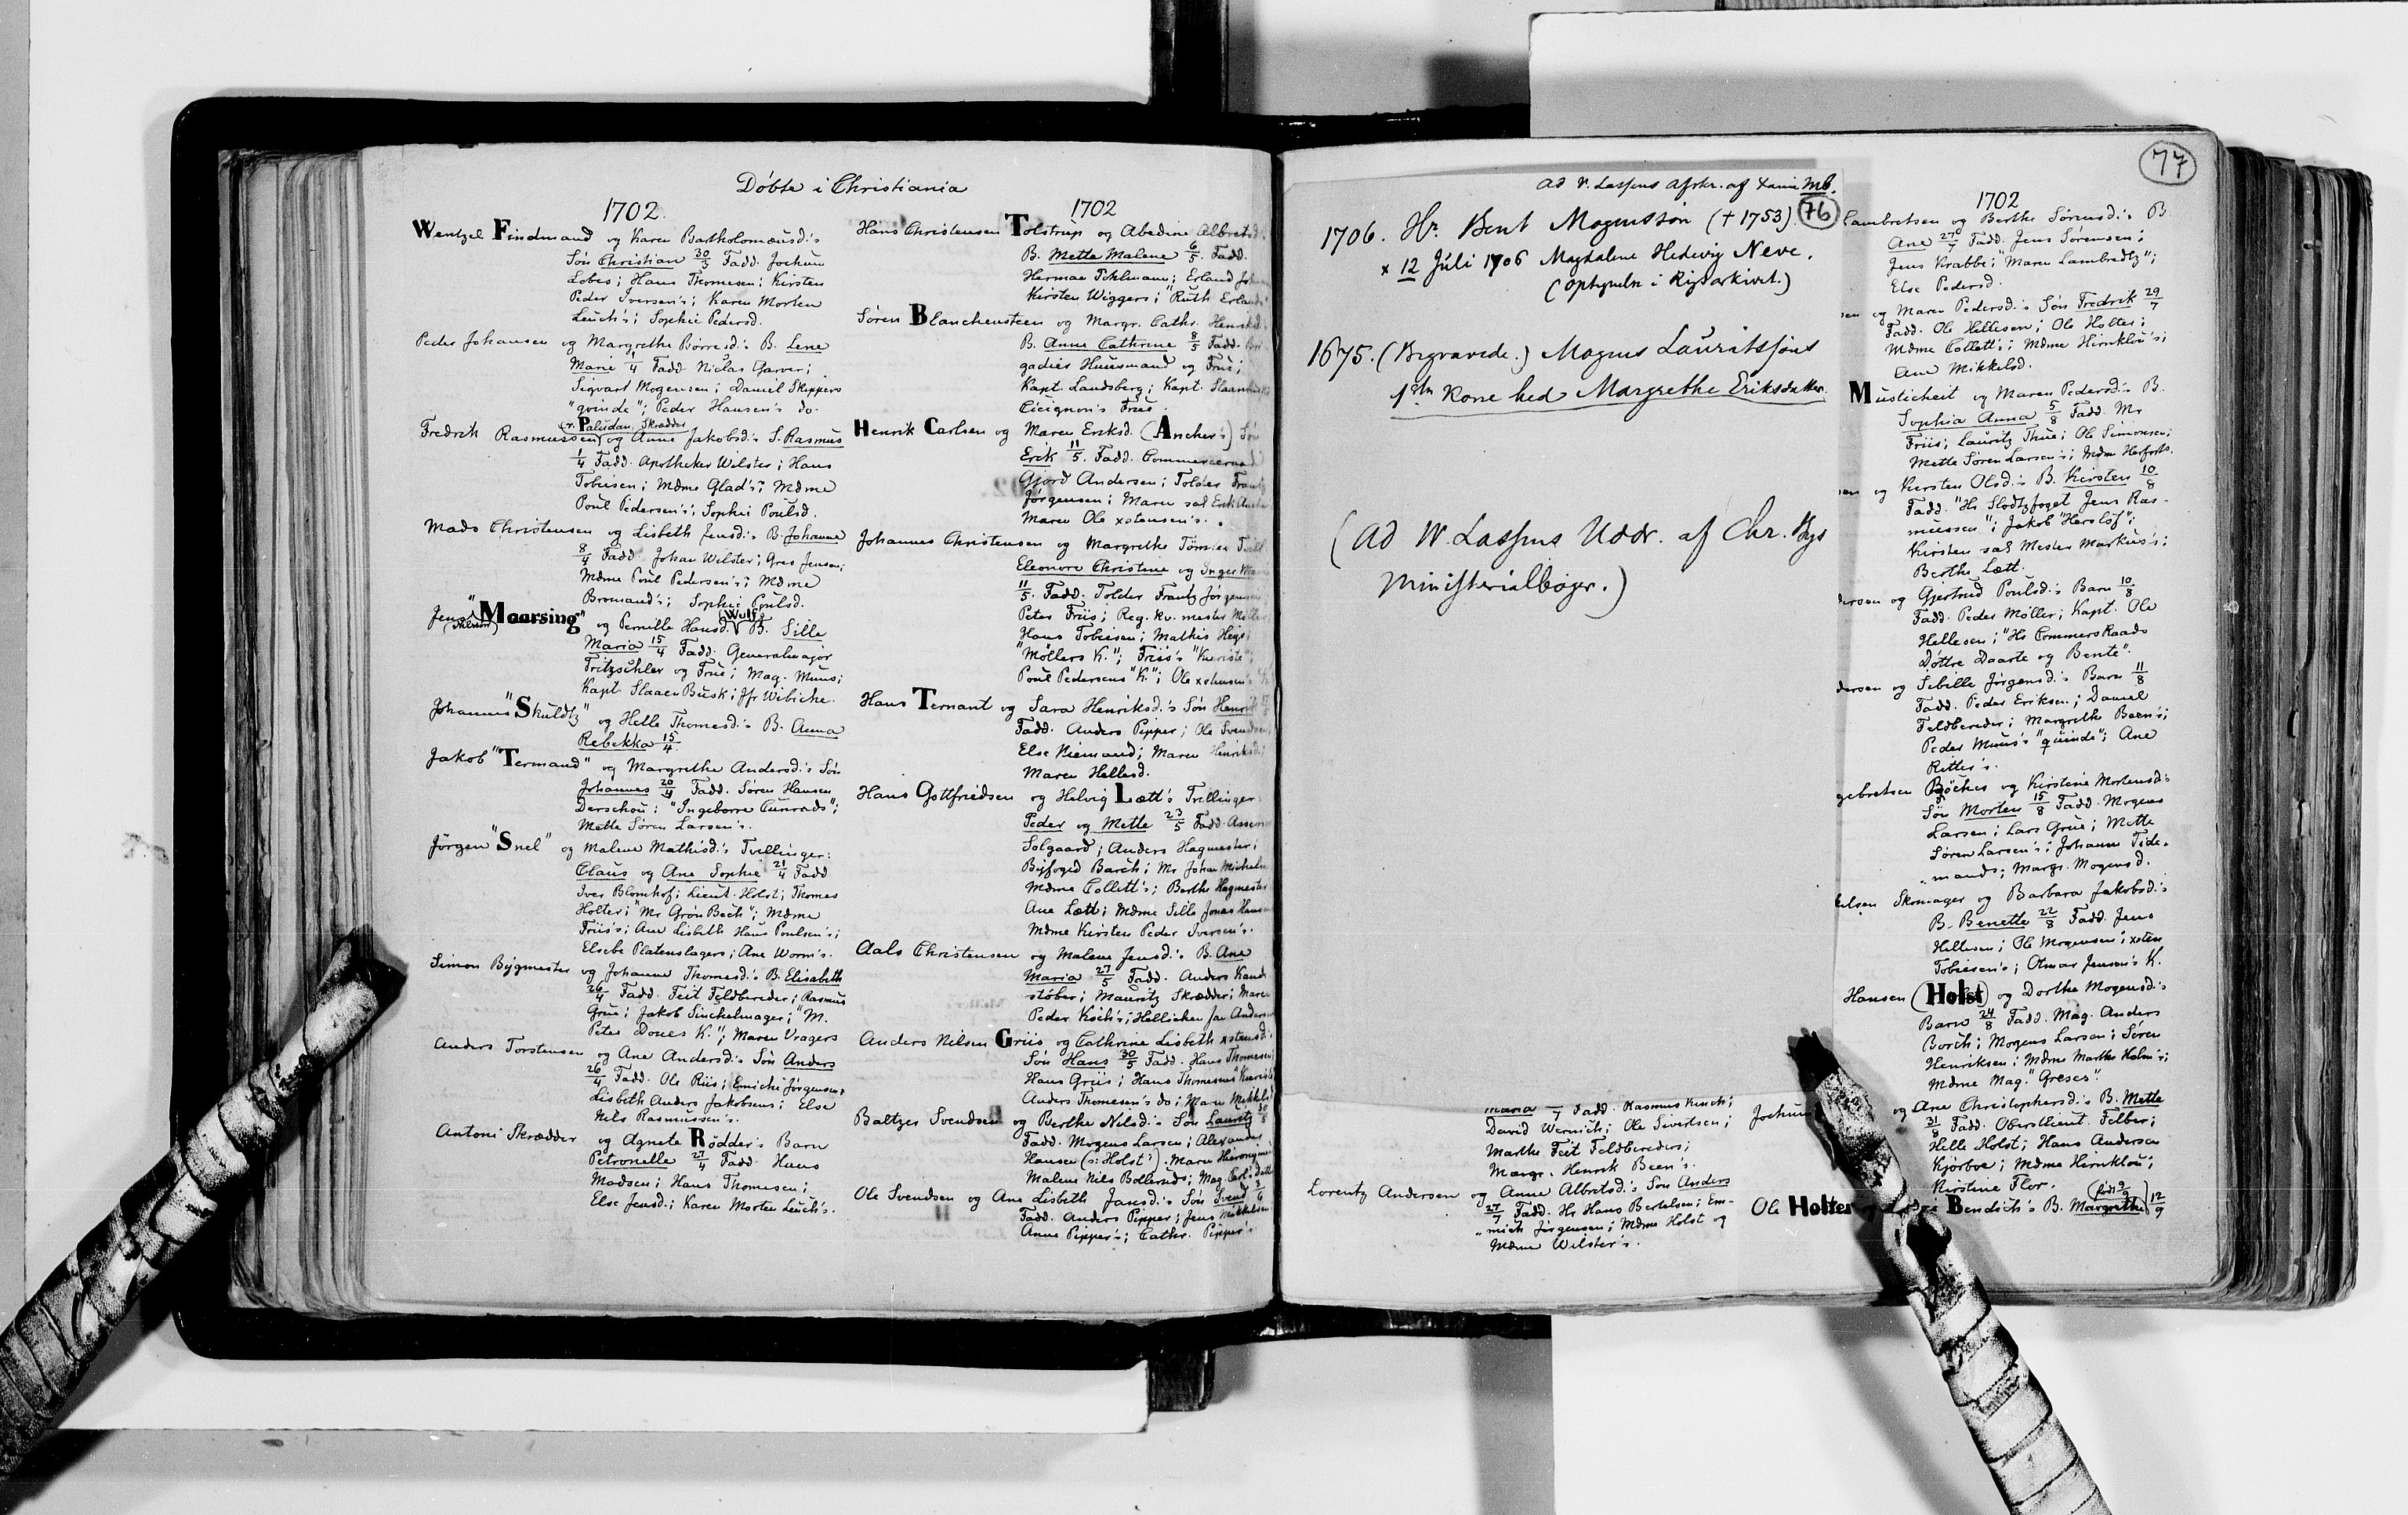 Døbte i Christiania
1702.
Wentzel Findmand og Karen Bartholomæusd.'s
Søn Christian 30/3 Fadd. Jochum
Lobes; Hans Thomesen; Kirsten
Peder Iversen's; Karen Morten
Leuch's; Sophie Pedersd.
Peder Johansen og Margrethe Børresd.'s B. Lene
Marie 1/4 Fadd Niclas Garver;
Sigvart Mogensen; Daniel Skippers
"qvinde"; Peder Hansen's do.
(v. Paludan, Skrædder)
Fredrik Rasmussen og Anne Jakobsd.'s S. Rasmus
1/4 Fadd. Apotheker Wilster; Hans
Tobiesen; Mdme Glad's; Mdme
Poul Pedersen's; Sophie Poulsd.
Mads Christensen og Lisbeth Jensd.'s B. Johanne
8/4 Fadd. Johan Wilster; Gres Jensen;
Mdme Poul Pedersen's; Mdme
Bromand's; Sophie Poulsd.
Jens "Maarsing" og Pernille Hansd. (Wulf) B. Sille
Maria 15/4 Fadd. Generalmajor
Tritzschler og Frue; Mag. Muus;
Kapt. Slaaen Busk; Jfr Wibiche.
Johannes "Skuldtz" og Helle Thomesd.'s B. Anna
Rebekka 15/4
Jakob "Termand" og Margrethe Andersd.'s Søn
Johannes 20/4 Fadd. Søren Hansen
Derschou; "Ingeborre Cunrads";
Mette Søren Larsen's.
Jørgen "Snel" og Malene Mathisd.'s Tvillinger:
Claus og Ane Sophie 21/4 Fadd
Iver Blomhof; Lieut. Holst; Thomes
Holter; "Mr Grøn Bech"; Mdme
Friis's; Ane Lisbeth Hans Poulsen's;
Elsebe Platenslagers; Ane Worm's.
Simon Bygmester og Johanne Thomesd.'s B. Elisabeth
26/4 Fadd. Feit Feldbereder; Rasmus
Grue; Jakob Sinchelmager; "M.
Peter Doues K."; Maren Vragers
Anders Torstensen og Ane Andersd.'s Søn Anders
26/4 Fadd. Ole Riis; Emichi Jørgensen;
Lisbeth Anders Jakobsens; Else
Nils Rasmussen's.
Antoni Skrædder og Agnete Rödder's Barn
Petronelle 27/4 Fadd. Hans
Madsen; Hans Thomesen;
Else Jensd.; Karen Morten Leuch's.
1702
Hans Christensen Tolstrup og Abedine Albretsd.
B. Mette Malene 6/5. Fadd.
Herman Tohlmann; Erland
Kirsten Wiggers; "Ruth Erlands
Søren Blanchensteen og Margr. Cathr. Henriksd.
B. Anne Cathrine 8/5 Fadd. Bri
gadier Huusmand og Frue;
Kapt. Landsberg; Kapt.
Cicignon's Frue.
Henrik Carlsen og Maren Eriksd. (Ancher's) Søn
Erik 11/5. Fadd. Commerceraad
Gjord Andersen; Tolder Frantz
Jørgensen; Maren sal Erik
Maren Ole xstensen's.
Johannes Christensen og Margrethe Tönnies Tvill
Eleonore Christine og Inger
11/5. Fadd. Tolder Frantz Jørgensen
Peter Friis; Reg. kv. mester Møller
Hans Tobiesen; Mathis
"Møllers K."; Friis's "Kieriste";
Poul Pedersens "K"; Ole xstensen's
Hans Ternant og Sara Henriksd.'s Søn Henrik
Fadd. Anders Pipper; Ole Svendsen
Else Niemand; Maren Henriksd;
Maren Hellesd.
Hans Gottfriedsen og Helvig Lætt's Tvillinger:
Peder og Mette 23/5 Fadd.
Solgaard; Anders Hagmester;
Byfoged Barch; Mr Johan
Mdme Collett's; Berthe Hagmester
Ane Lætt; Mdme Sille Jonas
Mdme Kirsten Peder Iversen's.
Aals Christensen og Malene Jensd.'s B. Ane
Maria 27/5 Fadd. Anders Kande
støber; Mauritz Skrædder; Maren
Peder Koch's; Hellichen Jan
Anders Nilsen Griis og Cathrine Lisbeth xstensd.
Søn Hans 30/5 Fadd. Hans Thomesen
Hans Griis; Hans Thomesens
Anders Thomesen's do; Maren
Baltzer Svendsen og Berthe Nilsd.'s Søn Lauritz 30/5
Fadd. Mogens Larsen; Alexander
Hansen (ɔ: Holst?). Maren
Malene Nils Bollerud's; Mag.
Ole Svendsen og Ane Lisbeth Jansd.'s Søn Svend
Fadd. Anders Pipper; Jens Mikkelsen
Anne Pipper's; Cathr. Pipper's
ad W. Lassens afskr. af Xania Mb.
76
1706. Hr. Bent Magnussøn (+ 1753)
x 12 Juli 1706 Magdalene Hedevig Neve.
(Ophyndn i Rigsarkivet.)
1675. (Begravede.) Magnus Lauritssøns
1ste Kone hed Margrethe Eriksdatter.
(Ad W. Lassens Uddr. af Chr. Bys
Ministerialbøger.)
Maria 7 Fadd. Rasmus
David Wernich; Ole Sivertsen;
Marthe Feit Feldbereders;
Margr. Henrik Been's.
Lorentz Andersen og Anne Albretsd.'s Søn Anders
27/7 Fadd. Hr Hans Bertelsen; Em-
mich Jørgensen; Mdme Holst og
Mdme Wilster's.
77
1702
Lambretsen og Berthe Sørensd.'s B
Ane 27/7 Fadd. Jens Sørensen;
Jens Krabbe; "Maren Lambredtz";
Else Pedersd.
sen og Maren Pedersd.'s Søn Fredrik 29/7
Fadd. Ole Hellesen; Ole Holter;
Mdme Collett's; Mdme Hirnklou's;
Ane Mikkelsd.
Musticheit og Maren Pedersd.'s B.
Sophia Anna 5/8 Fadd. Mr
Friis; Lauritz Thue; Ole Simonsen;
Mette Søren Larsen's; Mdm Herforts.
sen og Kirsten Olsd.'s B. Kirsten 10/8
Fadd. "Hr Slodtzfoget Jens Ras-
mussen"; Jakob "Herslöf";
Kirsten sal Mester Markus's;
Berthe Lætt.
dersen og Gjertrud Poulsd.'s Barn 10/8
Fadd. Peder Møller; Kapt. Ole
Hellesen; "Hr Commers Raads
Døttre Daarte og Bente".
dersen og Sibille Jørgensd.'s Barn 11/8
Fadd. Peder Eriksen; Daniel
Feldbereder; Margrethe Been's;
Peder Muus's "quinde"; Ane
Ritter's.
gebretsen Böcher og Kirstine Mortensd.'s
Søn Morten 15/8 Fadd. Mogens
Larsen; Lars Grue; Mette
Søren Larsen's; Johannes Tide-
mands; Margr. Mogensd.
elsen Skomager og Barbara Jakobsd.'s
B. Benette 22/8 Fadd. Jens
Hellesen; Ole Mogensen; xsten
Tobiesen's; Otmar Jensen's K.
Hansen (Holst) og Dorthe Mogensd.'s
Barn 24/8 Fadd. Mag. Anders
Borch; Mogens Larsen; Søren
Henriksen; Mdme Marthe Holm's;
Mdme Mag. "Greses".
Jochum og Ane Christophersd.'s B. Mette
31/8 Fadd. Oberstlieut. Felber;
Helle Holst; Hans Andersen
Kjørboe; Mdme Hirnklou;
Kirstine Flor.
Ole Holter og Bendich's B. Margrethe (født 9/9) 12/9